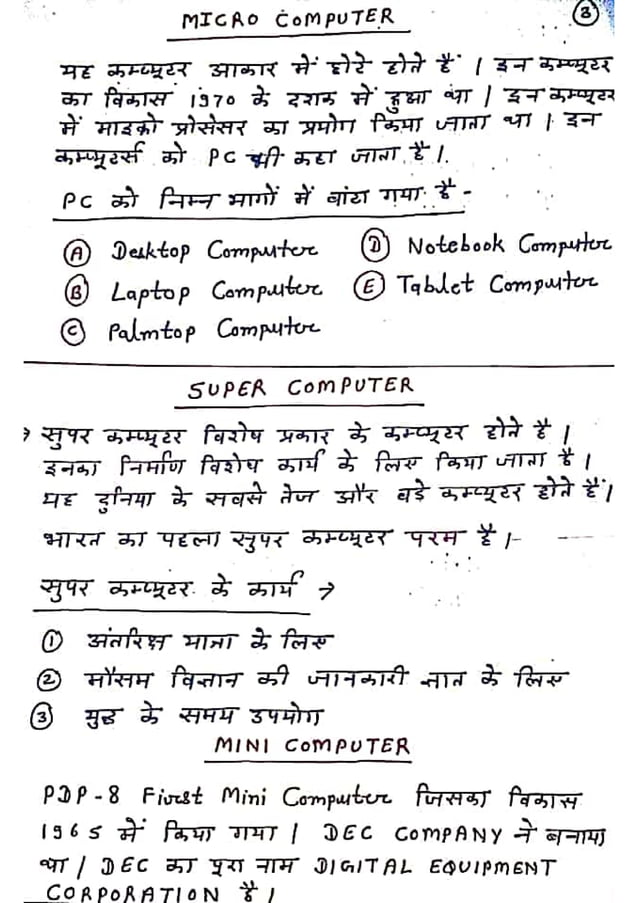 MICRO COMPUTER
3
यह कम्प्यूटर आकार में छोटे होते हैं । इन कम्प्यूटर
का विकास 1970 के दशक में हुआ था । इन कम्प्यूटर
में माइक्रो प्रोसेसर का प्रयोग किया जाता था । इन
कम्प्यूटर्स को PC भी कहा जाता है ।
PC को निम्न भागों में बांटा गया है -
Ⓐ Desktop Computer Ⓓ Notebook Computer
Ⓑ Laptop Computer Ⓔ Tablet Computer
Ⓒ Palmtop Computer
SUPER COMPUTER
→ सुपर कम्प्यूटर विशेष प्रकार के कम्प्यूटर होते है ।
इनका निर्माण विशेष कार्य के लिए किया जाता है ।
यह दुनिया के सबसे तेज और बड़े कम्प्यूटर होते हैं ।
भारत का पहला सुपर कम्प्यूटर परम है ।-
सुपर कम्प्यूटर के कार्य →
① अंतरिक्ष यात्रा के लिए
② मौसम विज्ञान की जानकारी ज्ञात के लिए
③ युद्ध के समय उपयोग
MINI COMPUTER
PDP-8 First Mini Computer जिसका विकास
1965 में किया गया । DEC COMPANY ने बनाया
था । DEC का पूरा नाम DIGITAL EQUIPMENT
CORPORATION है ।